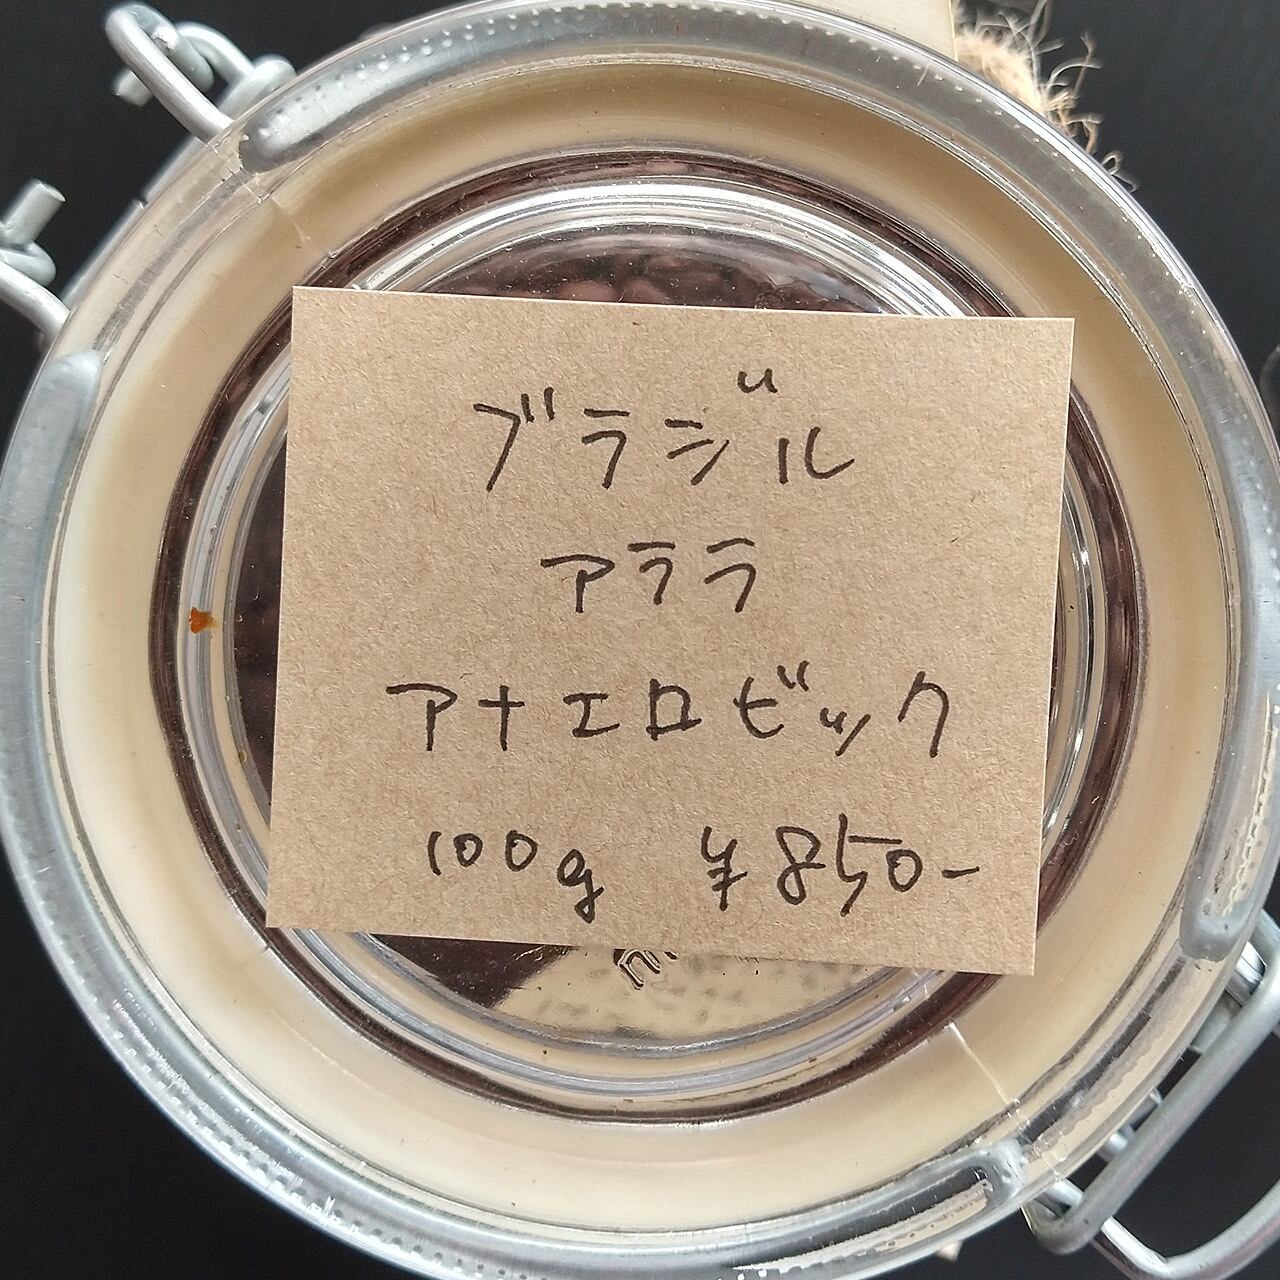 ブラジル
アララ
アナエロビック
100g ¥850-